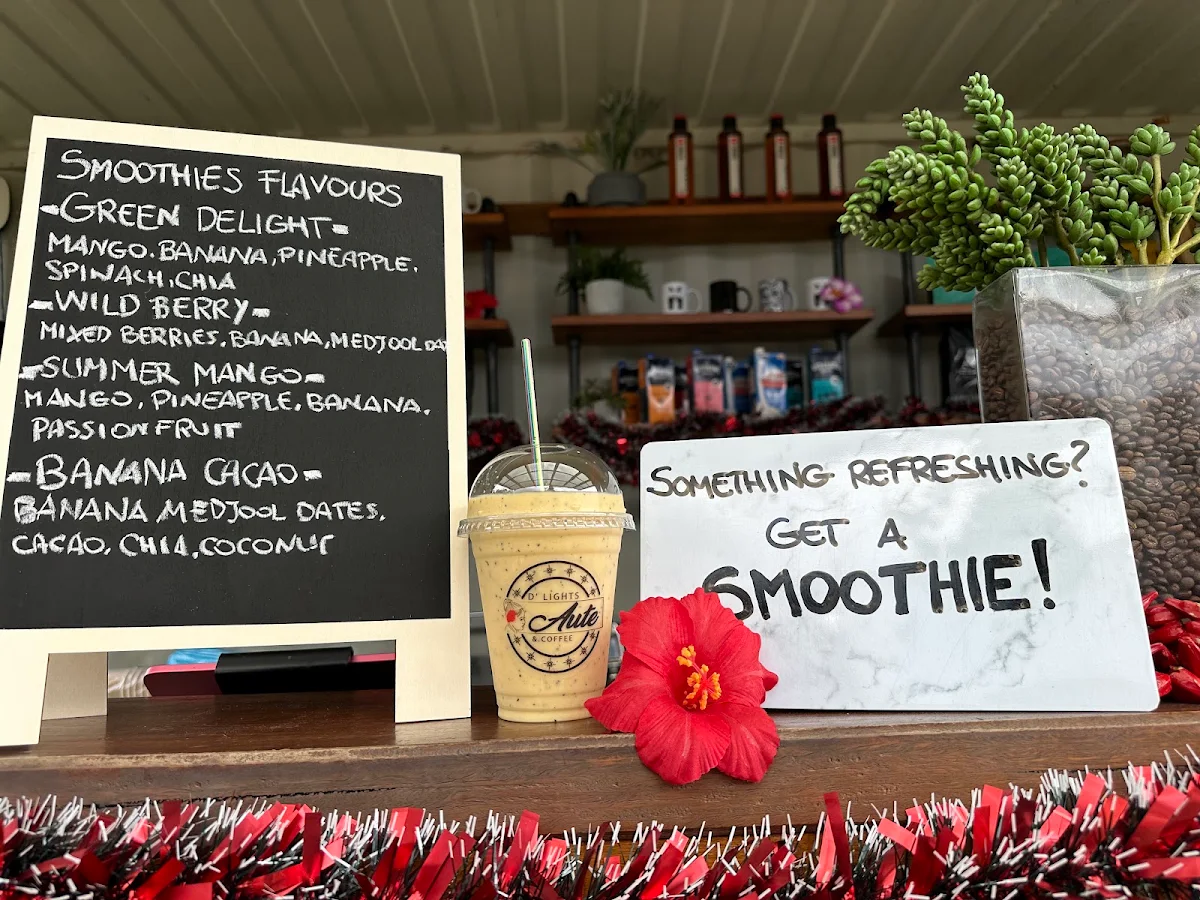 SMOOTHIES FLAVOURS
-GREEN DELIGHT-
MANGO.BANANA,PINEAPPLE.
SPINACH,CHIA
-WILD BERRY-
MIXED BERRIES.BANANA,MEDJOOL DAT
-SUMMER MANGO-
MANGO, PINEAPPLE.BANANA.
PASSION FRUIT
-BANANA CACAO-
BANANA MEDJOOL DATES.
CACAO, CHIA,COCONUT
D' LIGHTS
Aute
& COFFEE
SOMETHING REFRESHING?
GET A
SMOOTHIE!